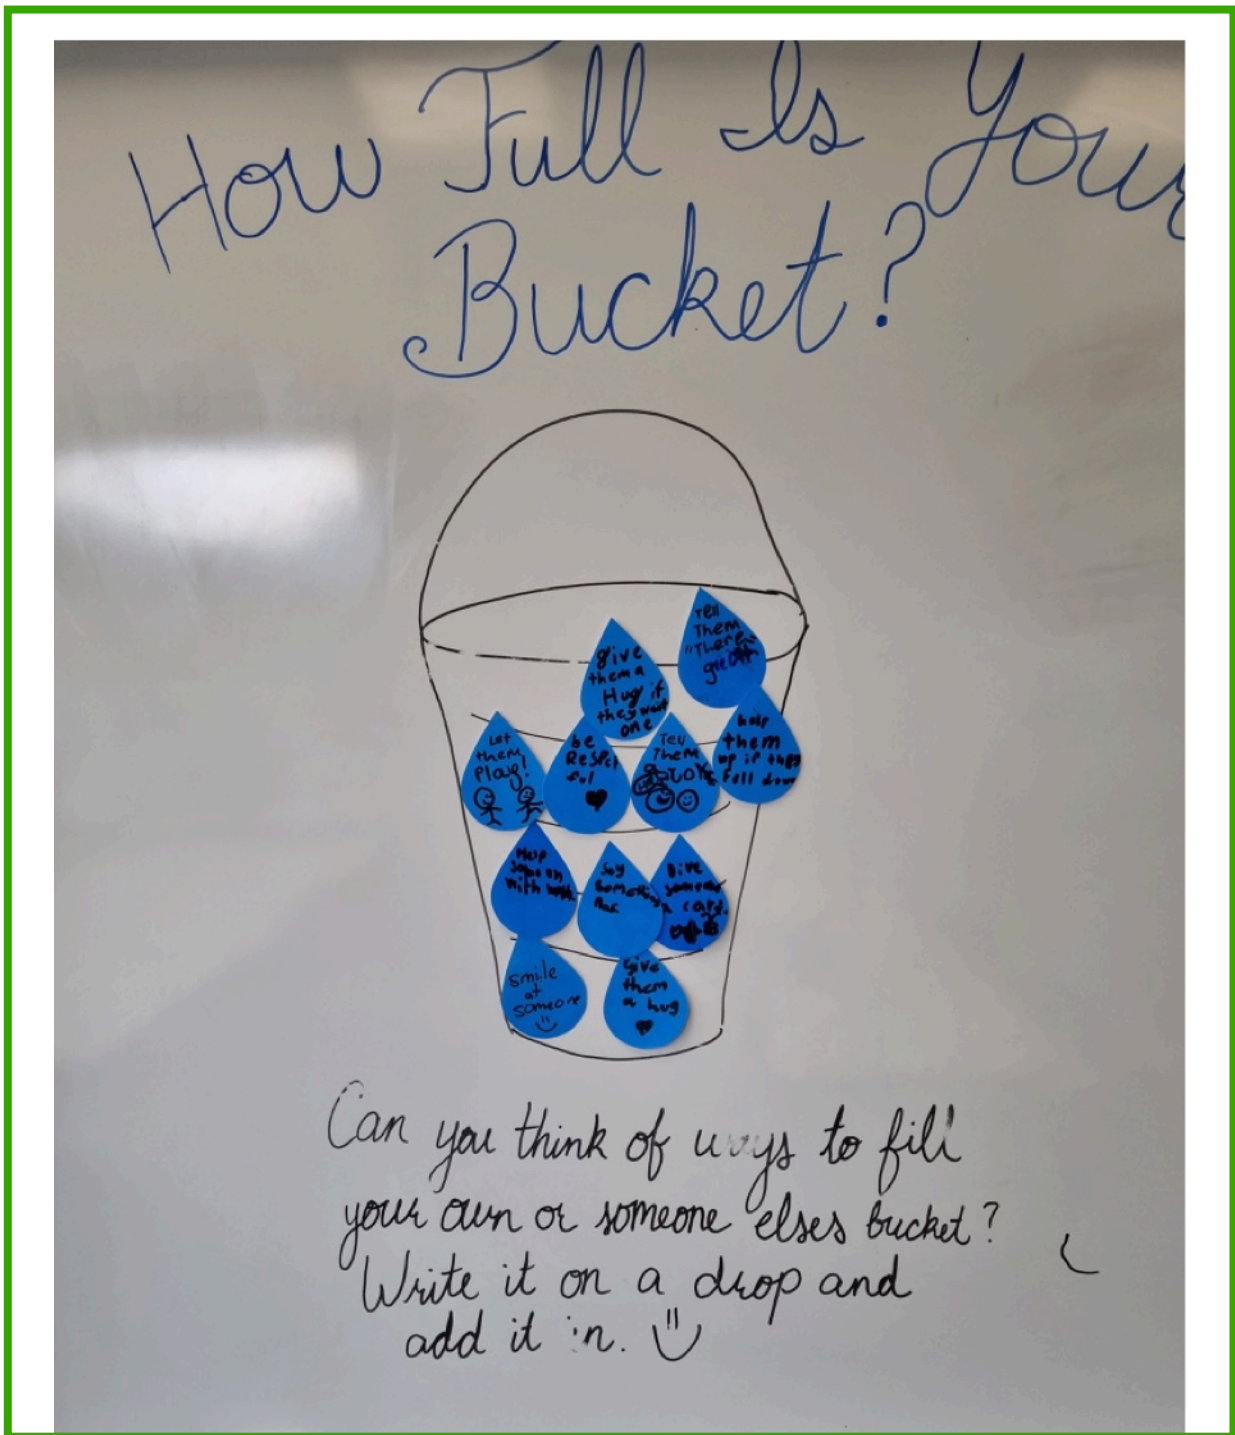 How Full Is Your
Bucket?
Tell
Them
"There
great"
give
them a
Hug if
they want
one
Let
them
Play!
be
Respect
ful
Tell
Them
help
them
up if they
fell down
Help
someone
with work
Say
Something
Give
someone
a card.
smile
at
someone
Give
them
a hug
Can you think of ways to fill
your own or someone elses bucket?
Write it on a drop and
add it in.